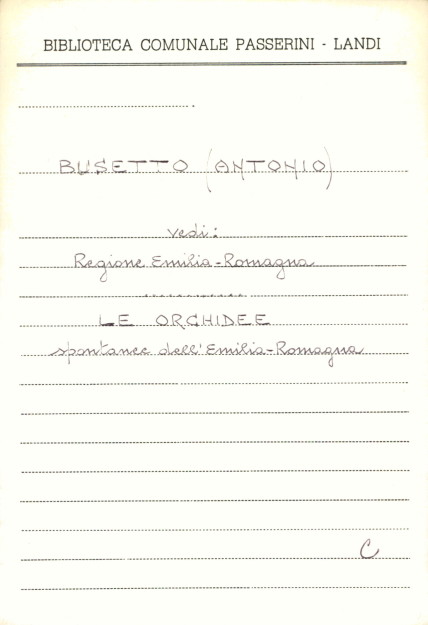 BIBLIOTECA COMUNALE PASSERINI - LANDI
BUSETTO (ANTONIO)
vedi:
Regione Emilia-Romagna
LE ORCHIDEE
spontanee dell'Emilia-Romagna
C